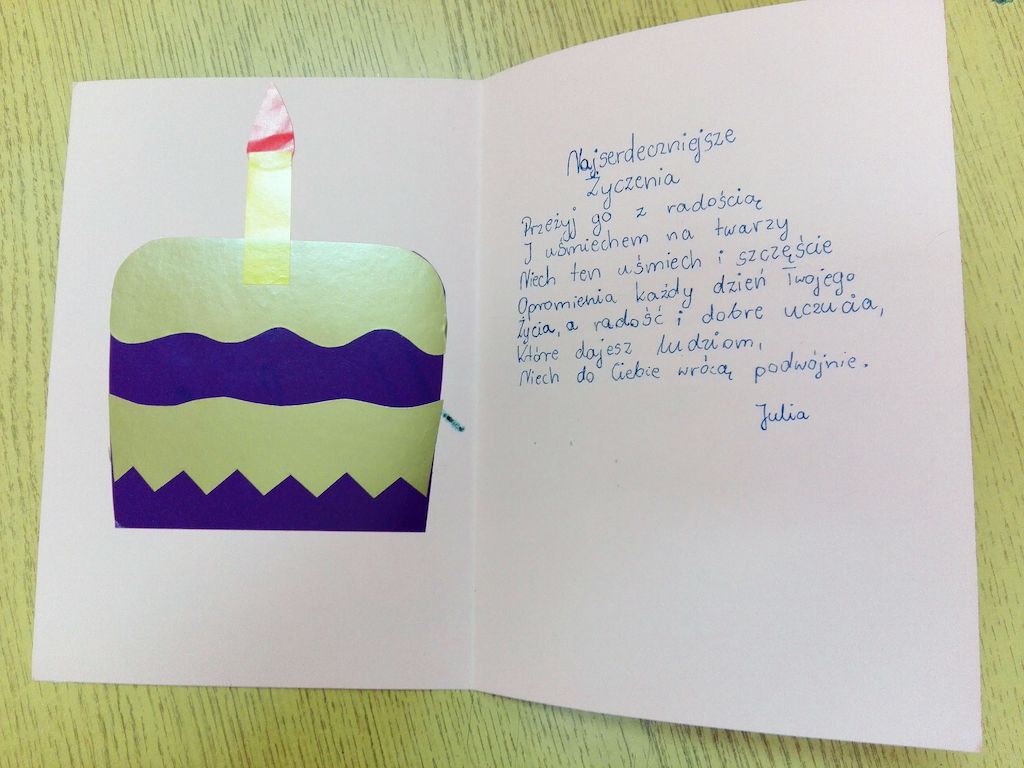 Najserdeczniejsze
Życzenia
Przeżyj go z radością
I uśmiechem na twarzy
Niech ten uśmiech i szczęście
Opromienia każdy dzień Twojego
Życia, a radość i dobre uczucia,
Które dajesz ludziom,
Niech do Ciebie wrócą podwójnie.
Julia